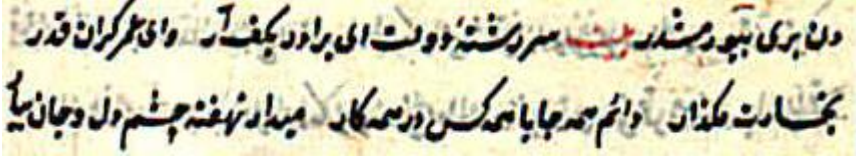 دن بزی بپو رمشدر بیت سر رشتهٔ دولت ای برادر بکف آر وای عمر گران قدر
بخسارت مگذار دائم همه جا با همه کس در همه کار میدار نهفته چشم دل و جان بیا